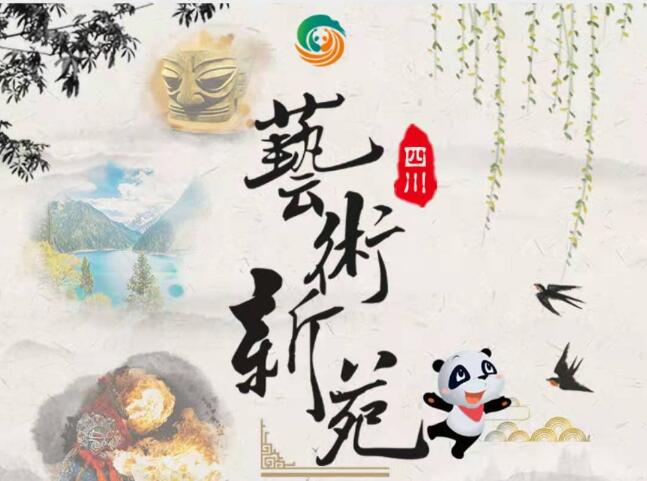 藝術
新苑
四川